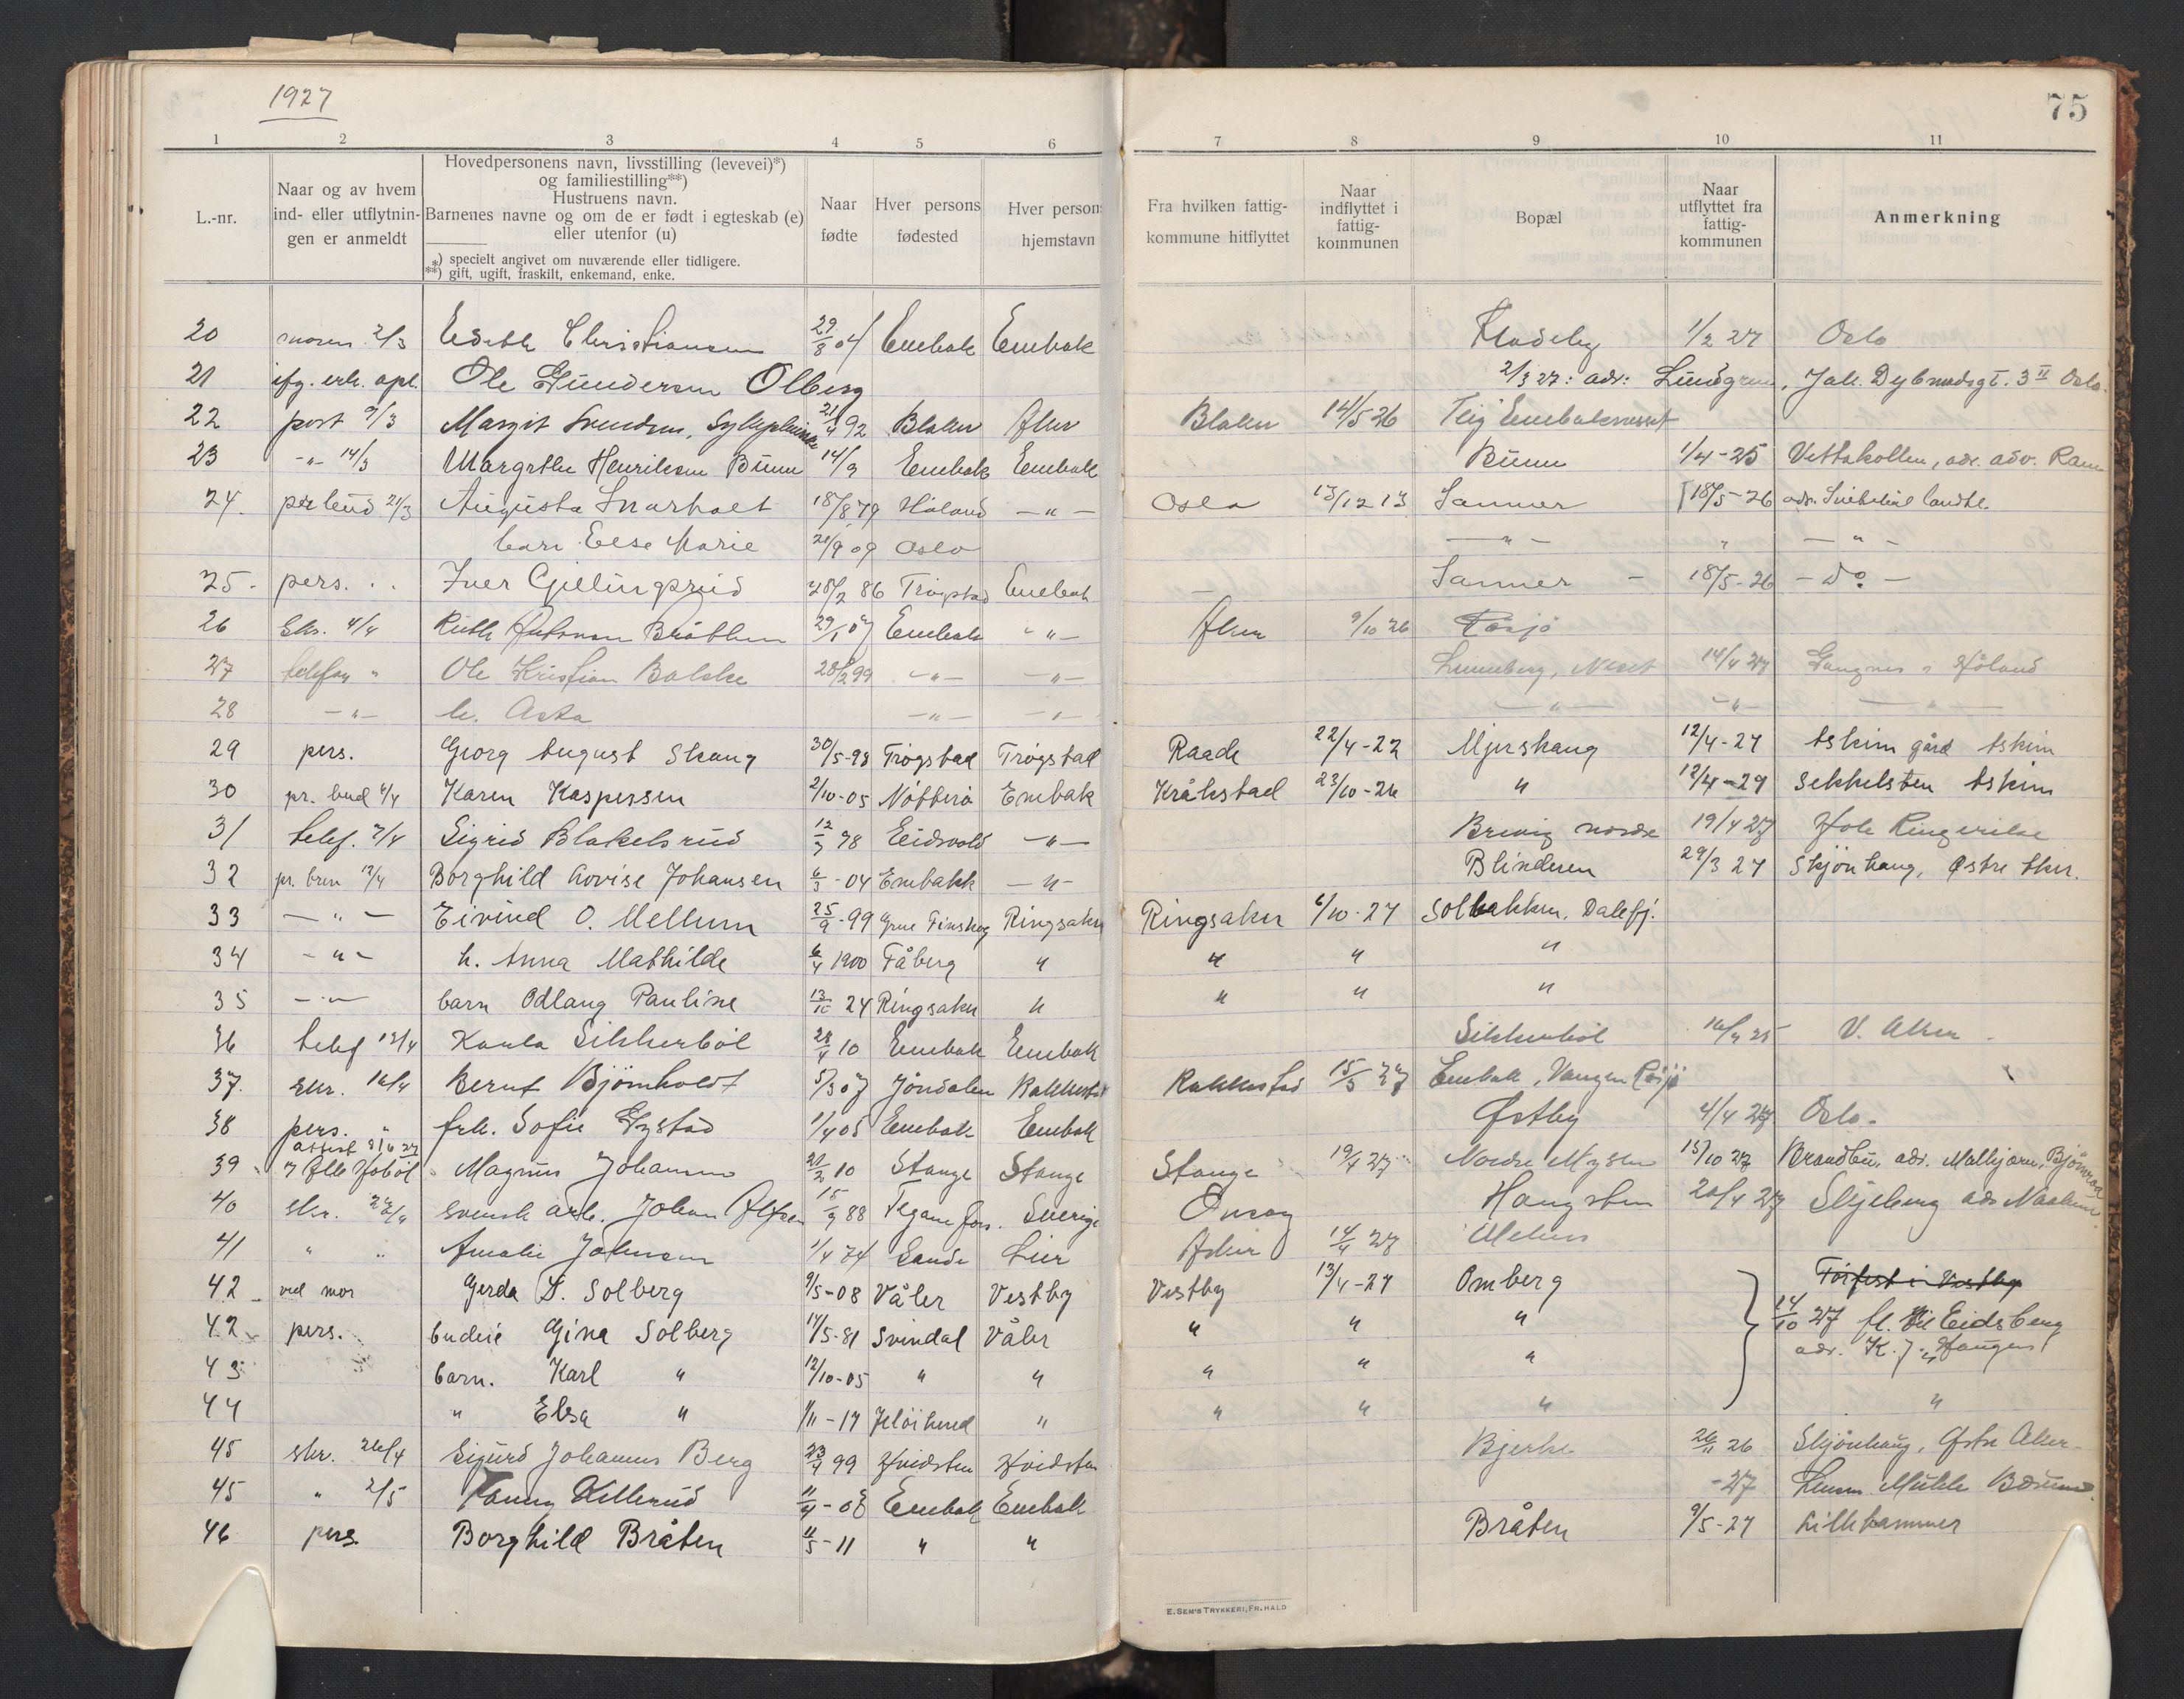 1927
75
1 2 3 4 5 6 7 8 9 10 11
L.-nr.
Naar og av hvem
ind- eller utflytnin-
gen er anmeldt
Hovedpersonens navn, livsstilling (levevei)*)
og familiestilling**)
Hustruens navn.
Barnenes navne og om de er født i egteskab (e)
eller utenfor (u)
*) specielt angivet om nuværende eller tidligere.
**) gift, ugift, fraskilt, enkemand, enke.
Naar
fødte
Hver persons
fødested
Hver person
hjemstavn
Fra hvilken fattig-
kommune hitflyttet
Naar
indflyttet i
fattig-
kommunen
Bopæl
Naar
utflyttet fra
fattig-
kommunen
Anmerkning
20 moren 2/3 Edith Christiansen 29/8 04 Enebak Enebak 1/2 27 Oslo
21 ifg. erk. opl. Ole Gundersen Olberg 2/3 27: adr: Lundgren, 3 II Oslo.
22 post 9/3 Margit Svendsen, 21/4 92 Blaker Aker Blaker 14/5 26 Enebaknesset
23 -"- 14/3 Margrethe Henriksen Bunn 14/9 Enebak Enebak Bunn 1/4-25 Vettakollen, adr. adv.
24. pr bud 21/3 Augusta Snarholt 18/8 79 Høland -"- Oslo 13/12 13 Sanner 18/5-26 adr.
barn Else Marie 21/9 09 Oslo -"- " -"-
25. pers. Iver Gjellingsrud 28/2 86 Trøgstad Enebak Sanner - 18/5-26 - Do -
26 Skr. 4/4 Ruth Bråthen 29/1 07 Enebak -"- Aker 9/10 26 Råsjø
27 telefon " Ole Kristian Bakke 28/2 99 -"- -"- Luneberg, Neset 14/4 27 Gangnes i Høland
28 -"- h. Asta -"- -"- -"- -"- -"-
29 pers. Georg August Skaug 30/5-98 Trøgstad Trøgstad Raade 22/4-22 Mjerskaug 12/4-27 Askim gård Askim
30 pr. bud 4/4 Karen Kaspersen 2/10-05 Nøtterø Enebak Kråkstad 23/10-26 " 12/4-27 Sekkelsten Askim
31 telef. 7/4 Sigrid Blakelsrud 12/7 78 Eidsvold -"- Brevig nordre 19/4 27 Hole Ringerike
32 pr. brev 12/4 Borghild Lovise Johansen 6/3-04 Enebakk -"- Blinderen 29/3 27 Skjønhaug, Østre Aker.
33 -"- Eivind O. Mellum 25/9-99 Grue Finskog Ringsaker Ringsaker 6/10-27 Solbakken, Dalefj.
34 -"- h. Anna Mathilde 6/4 1900 Fåberg " " " "
35 -"- barn Odlaug Pauline 13/10 24 Ringsaker " " " "
36 telef 12/4 Karla Sikkerbøl 28/4 10 Enebak Enebak Sikkerbøl 16/4 25 V. Aker.
37. skr. 16/4 Bernt Bjørnholdt 5/3 07 Jøndalen Rakkestad Rakkestad 15/3 27 Enebak, Vangen Råsjø
38 pers. " frk. Sofie Gystad 1/4 05 Enebak Enebak Østby 4/4 27 Oslo.
39 Hobøl Magnus Johansen 21/2 10 Stange Stange Stange 19/4 27 Nordre Mysen 15/10 27 Brandbu, adr.
40 skr. 22/4 svensk arb. Johan 15/9 88 Sverige Onsøy Haugsten 20/4 27 Skjeberg adr
41 " " Amalie Johnsen 1/4 74 Sande Lier Asker 14/4 27
42 ved mor Gerda S. Solberg 9/5-08 Våler Vestby Vestby 13/4-27 Omberg Tørfest i Vestby
42 pers. budeie Gina Solberg 14/5-81 Svindal Våler " " " 14/10 27 fl. til Eidsberg
adr. K. J. Haugen
43 barn. Karl " 12/10-05 " " " " "
44 " Elsa " 1/11-17 " " " " "
45 skr. 26/4 Sigurd Johannes Berg 23/4 99 Hvidsten Hvidsten Bjerke 26/11 26 Skjønhaug, Østre Aker
45 " 2/5 Fanny Killerud 11/4-08 Enebak Enebak -27 Bærum
46 pers. Borghild Bråten 11/5-11 " " Bråten 9/5-27 Lillehammer
E. SEM'S TRYKKERI, FR.HALD